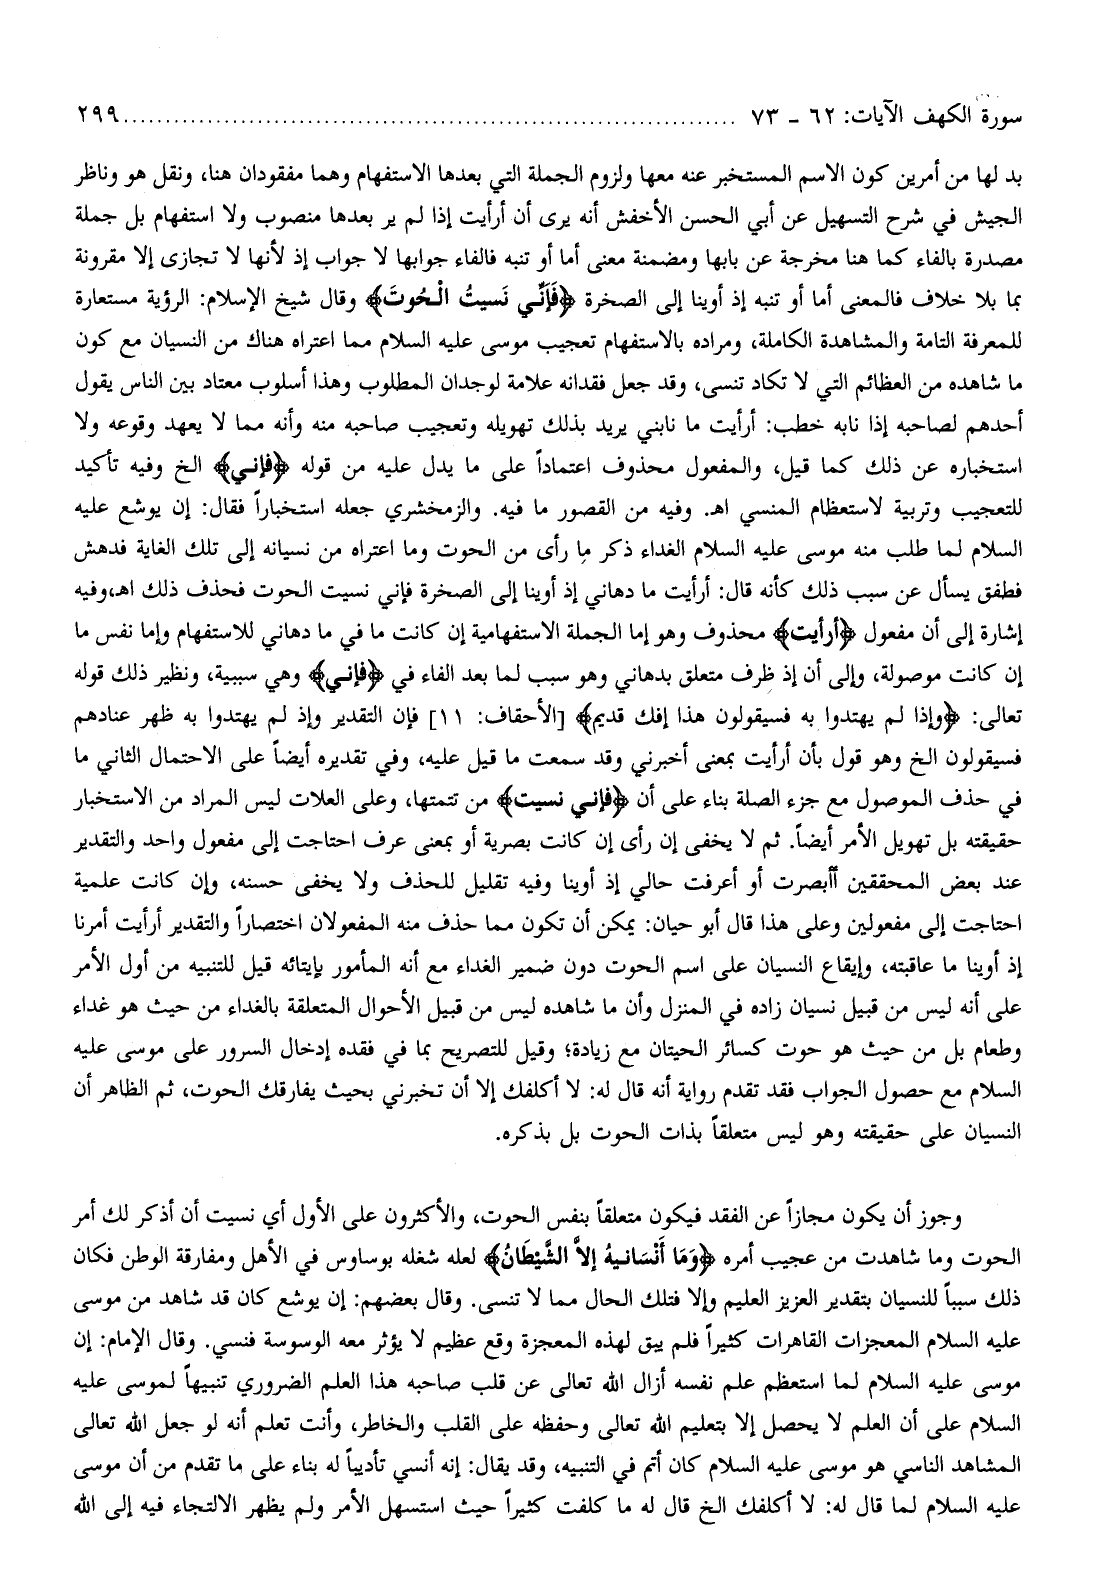 سورة الكهف الآيات: ٦٢ ـ ٧٣ ........................................................................ ٢٩٩
بد لها من أمرين كون الاسم المستخبر عنه معها ولزوم الجملة التي بعدها الاستفهام وهما مفقودان هنا، ونقل هو وناظر
الجيش في شرح التسهيل عن أبي الحسن الأخفش أنه يرى أن أرأيت إذا لم ير بعدها منصوب ولا استفهام بل جملة
مصدرة بالفاء كما هنا مخرجة عن بابها ومضمنة معنى أما أو تنبه فالفاء جوابها لا جواب إذ لأنها لا تجازى إلا مقرونة
بما بلا خلاف فالمعنى أما أو تنبه إذ أوينا إلى الصخرة ﴿فَإِنِّي نَسيتُ الْحُوتَ﴾ وقال شيخ الإسلام: الرؤية مستعارة
للمعرفة التامة والمشاهدة الكاملة، ومراده بالاستفهام تعجيب موسى عليه السلام مما اعتراه هناك من النسيان مع كون
ما شاهده من العظائم التي لا تكاد تنسى، وقد جعل فقدانه علامة لوجدان المطلوب وهذا أسلوب معتاد بين الناس يقول
أحدهم لصاحبه إذا نابه خطب: أرأيت ما نابني يريد بذلك تهويله وتعجيب صاحبه منه وأنه مما لا يعهد وقوعه ولا
استخباره عن ذلك كما قيل، والمفعول محذوف اعتماداً على ما يدل عليه من قوله ﴿فإنـي﴾ الخ وفيه تأكيد
للتعجيب وتربية لاستعظام المنسي اهـ. وفيه من القصور ما فيه. والزمخشري جعله استخباراً فقال: إن يوشع عليه
السلام لما طلب منه موسى عليه السلام الغداء ذكر ما رأى من الحوت وما اعتراه من نسيانه إلى تلك الغاية فدهش
فطفق يسأل عن سبب ذلك كأنه قال: أرأيت ما دهاني إذ أوينا إلى الصخرة فإني نسيت الحوت فحذف ذلك اهـ،وفيه
إشارة إلى أن مفعول ﴿أرأيت﴾ محذوف وهو إما الجملة الاستفهامية إن كانت ما في ما دهاني للاستفهام وإما نفس ما
إن كانت موصولة، وإلى أن إذ ظرف متعلق بدهاني وهو سبب لما بعد الفاء في ﴿فإنـي﴾ وهي سببية، ونظير ذلك قوله
تعالى: ﴿وإذا لم يهتدوا به فسيقولون هذا إفك قديم﴾ [الأحقاف: ١١] فإن التقدير وإذ لم يهتدوا به ظهر عنادهم
فسيقولون الخ وهو قول بأن أرأيت بمعنى أخبرني وقد سمعت ما قيل عليه، وفي تقديره أيضاً على الاحتمال الثاني ما
في حذف الموصول مع جزء الصلة بناء على أن ﴿فإنـي نسيت﴾ من تتمتها، وعلى العلات ليس المراد من الاستخبار
حقيقته بل تهويل الأمر أيضاً. ثم لا يخفى إن رأى إن كانت بصرية أو بمعنى عرف احتاجت إلى مفعول واحد والتقدير
عند بعض المحققين أأبصرت أو أعرفت حالي إذ أوينا وفيه تقليل للحذف ولا يخفى حسنه، وإن كانت علمية
احتاجت إلى مفعولين وعلى هذا قال أبو حيان: يمكن أن تكون مما حذف منه المفعولان اختصاراً والتقدير أرأيت أمرنا
إذ أوينا ما عاقبته، وإيقاع النسيان على اسم الحوت دون ضمير الغداء مع أنه المأمور بإيتائه قيل للتنبيه من أول الأمر
على أنه ليس من قبيل نسيان زاده في المنزل وأن ما شاهده ليس من قبيل الأحوال المتعلقة بالغداء من حيث هو غداء
وطعام بل من حيث هو حوت كسائر الحيتان مع زيادة؛ وقيل للتصريح بما في فقده إدخال السرور على موسى عليه
السلام مع حصول الجواب فقد تقدم رواية أنه قال له: لا أكلفك إلا أن تخبرني بحيث يفارقك الحوت، ثم الظاهر أن
النسيان على حقيقته وهو ليس متعلقاً بذات الحوت بل بذكره.
وجوز أن يكون مجازاً عن الفقد فيكون متعلقاً بنفس الحوت، والأكثرون على الأول أي نسيت أن أذكر لك أمر
الحوت وما شاهدت من عجيب أمره ﴿وَمَا أَنْسَانـيهُ إلاَّ الشَّيْطَانُ﴾ لعله شغله بوساوس في الأهل ومفارقة الوطن فكان
ذلك سبباً للنسيان بتقدير العزيز العليم وإلا فتلك الحال مما لا تنسى. وقال بعضهم: إن يوشع كان قد شاهد من موسى
عليه السلام المعجزات القاهرات كثيراً فلم يبق لهذه المعجزة وقع عظيم لا يؤثر معه الوسوسة فنسي. وقال الإمام: إن
موسى عليه السلام لما استعظم علم نفسه أزال الله تعالى عن قلب صاحبه هذا العلم الضروري تنبيهاً لموسى عليه
السلام على أن العلم لا يحصل إلا بتعليم الله تعالى وحفظه على القلب والخاطر، وأنت تعلم أنه لو جعل الله تعالى
المشاهد الناسي هو موسى عليه السلام كان أتم في التنبيه، وقد يقال: إنه أنسي تأديباً له بناء على ما تقدم من أن موسى
عليه السلام لما قال له: لا أكلفك الخ قال له ما كلفت كثيراً حيث استسهل الأمر ولم يظهر الالتجاء فيه إلى الله